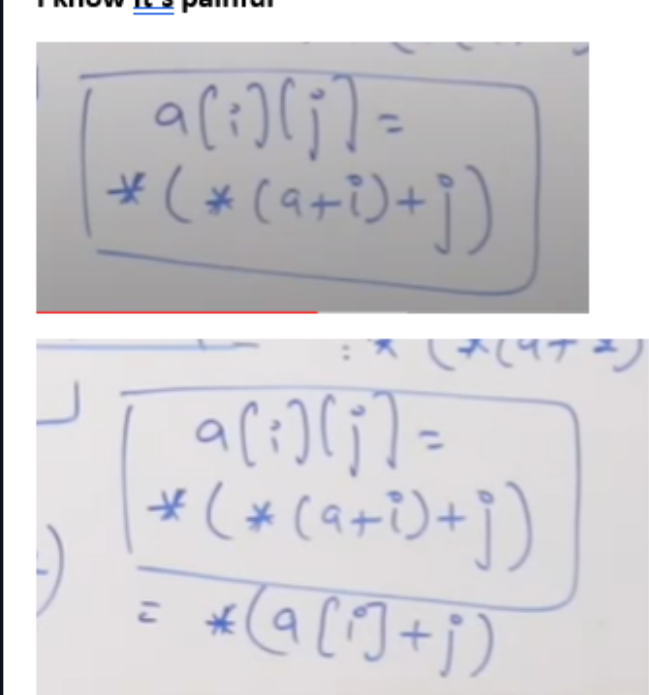 I know it's painful
a[i][j] =
*(*(a+i)+j)
: * (*(a+2)
a[i][j] =
*(*(a+i)+j)
= *(a[i]+j)